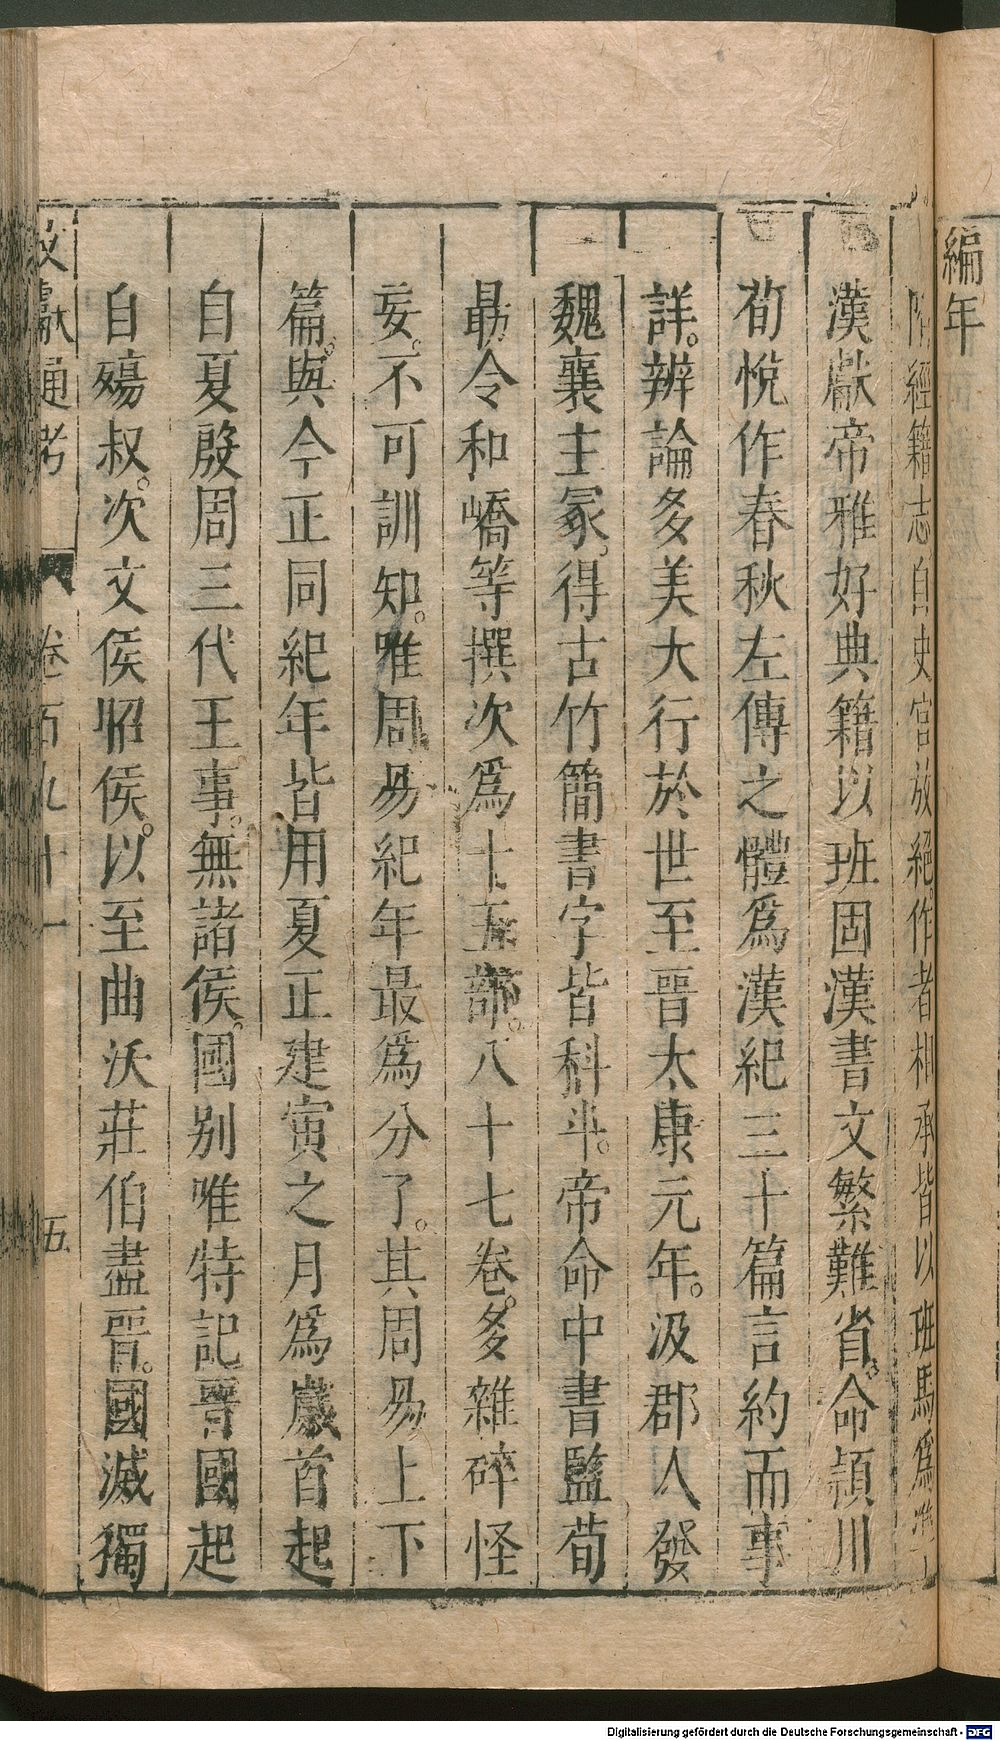 編年
隋經籍志自史官放絕作者相承皆以班馬爲準
漢獻帝雅好典籍以班固漢書文繁難省。命頴川
荀悅作春秋左傳之體爲漢紀三十篇言約而事
詳。辨論多美大行於世至晉太康元年。汲郡人發
魏襄王冢。得古竹簡書字皆科斗。帝命中書監荀
勗令和嶠等撰次爲十五部。八十七卷。多雜碎怪
妄。不可訓知。唯周易紀年最爲分了。其周易上下
篇。與今正同紀年皆用夏正建寅之月爲歲首起
自夏殷周三代王事。無諸侯。國别唯特記晉國起
自殤叔。次文侯昭侯。以至曲沃莊伯盡晉。國滅獨
文獻通考 卷百九十一 五
Digitalisierung gefördert durch die Deutsche Forschungsgemeinschaft - DFG